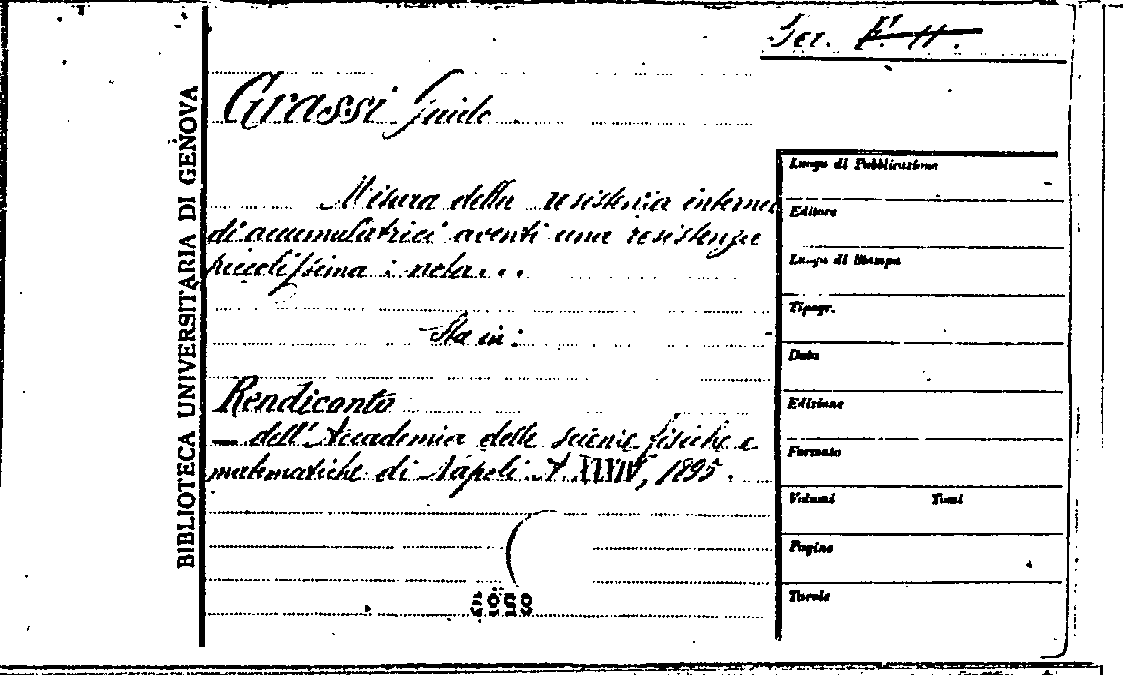 Ser. F. 11.
Grassi Guido
BIBLIOTECA UNIVERSITARIA DI GENOVA
Misura della resistenza interna
di accumulatrici aventi una resistenza
piccolissima : nota...
Sta in:
Rendiconto
— dell'Accademia delle scienze fisiche e
matematiche di Napoli. A. XXXIV, 1895.
Luogo di Pubblicazione
Editore
Luogo di Stampa
Tipogr.
Data
Edizione
Formato
Volumi Tomi
Pagine
Tavole